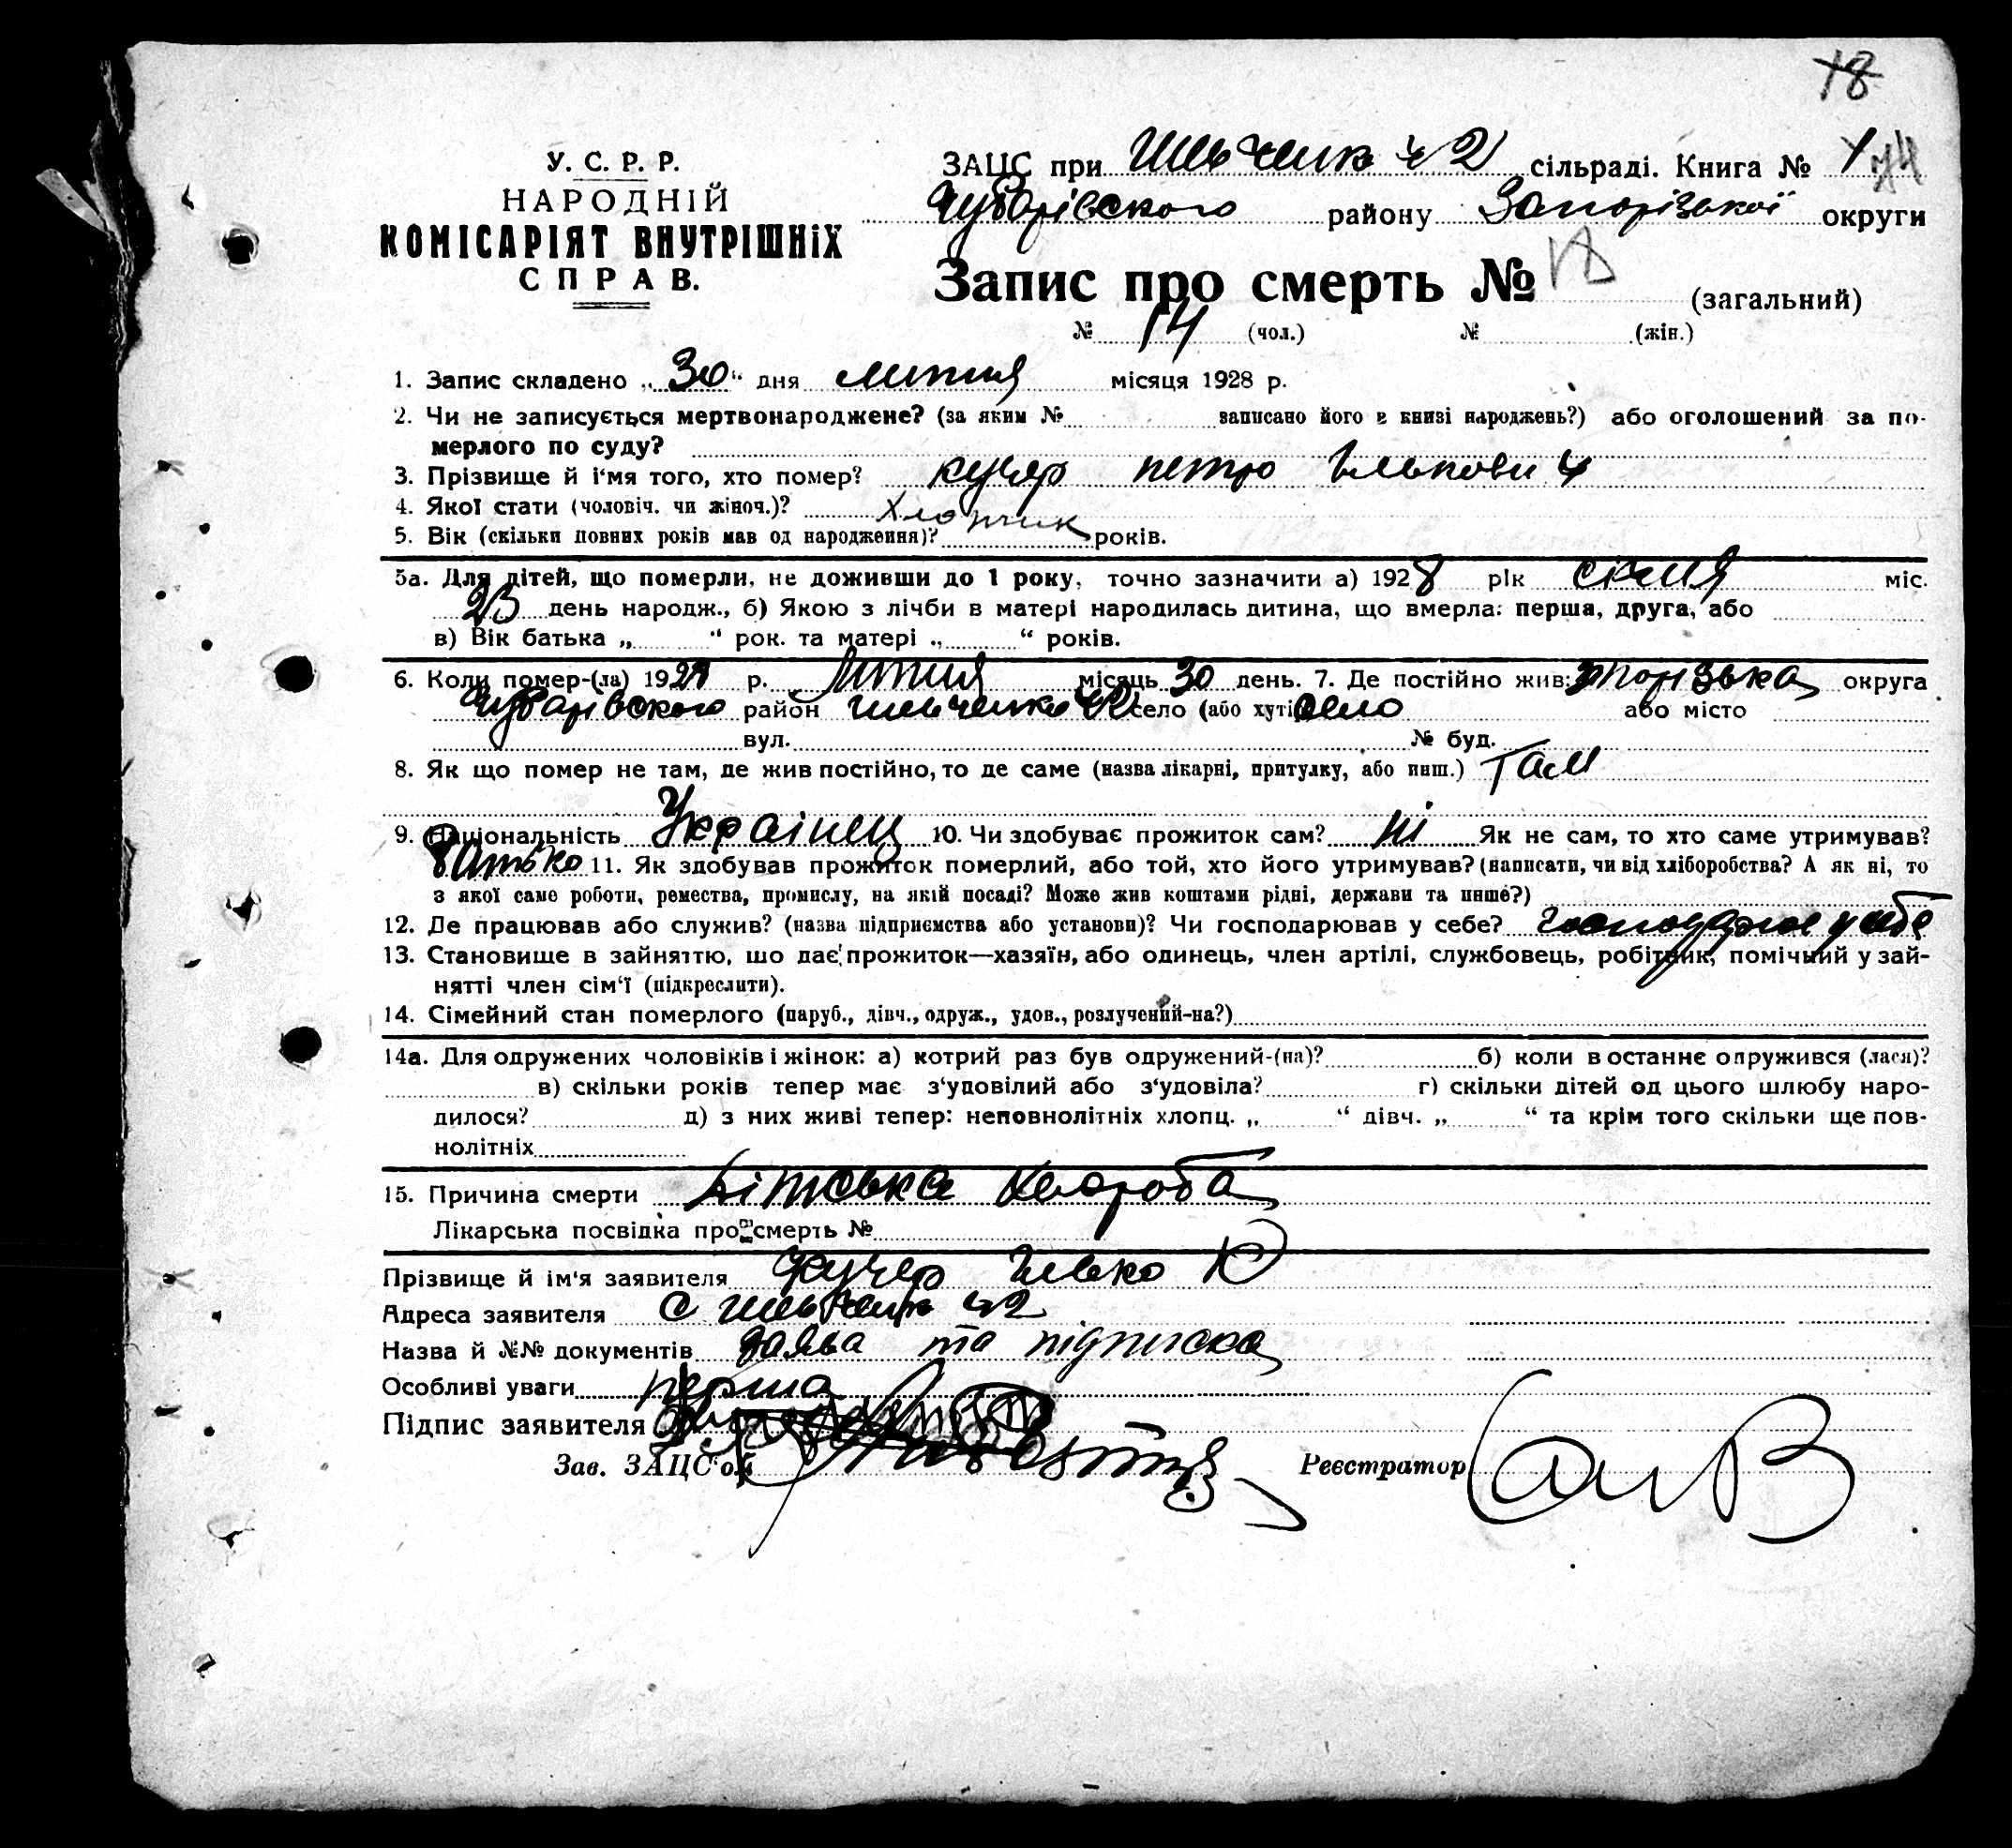 18
У. С. Р. Р.
НАРОДНІЙ
КОМІСАРІЯТ ВНУТРІШНІХ
СПРАВ.
ЗАЦС при ч 2 сільраді. Книга № 1
Чубарівского району Запорізької округи
Запис про смерть № 18 (загальний)
№ 14 (чол.) № (жін.)
1. Запис складено „ 30 “ дня липня місяця 1928 р.
2. Чи не записується мертвонароджене? (за яким № записано його в книзі народжень?) або оголошений за по-
мерлого по суду?
3. Прізвище й і‘мя того, хто помер? кучер петро Ількович
4. Якої стати (чоловіч. чи жіноч.)? Хлопчик
5. Вік (скільки повних років мав од народження)? років.
5а. Для дітей, що померли, не доживши до 1 року, точно зазначити а) 1928 рік січня міс.
23 день народж., б) Якою з лічби в матері народилась дитина, що вмерла: перша, друга, або
в) Вік батька „ “ рок. та матері „ “ років.
6. Коли помер-(ла) 1928 р. липня місяць 30 день. 7. Де постійно жив: Запорізька округа
Чубарівского район село (або хутір) село або місто
вул. № буд.
8. Як що помер не там, де жив постійно, то де саме (назва лікарні, притулку, або инш.) Там
9. Національність Українец 10. Чи здобуває прожиток сам? Ні Як не сам, то хто саме утримував?
батько 11. Як здобував прожиток померлий, або той, хто його утримував? (написати, чи від хліборобства? А як ні, то
з якої саме роботи, ремества, промислу, на якій посаді? Може жив коштами рідні, держави та инше?)
12. Де працював або служив? (назва підприємства або установи)? Чи господарював у себе? господарює у себе
13. Становище в зайняттю, шо дає прожиток—хазяїн, або одинець, член артілі, службовець, робітник, помічний у зай-
нятті член сім‘ї (підкреслити).
14. Сімейний стан померлого (паруб., дівч., одруж., удов., розлучений-на?)
14а. Для одружених чоловіків і жінок: а) котрий раз був одружений-(на)? б) коли в останнє одружився (лася)?
в) скільки років тепер має з‘удовілий або з‘удовіла? г) скільки дітей од цього шлюбу наро-
дилося? д) з них живі тепер: неповнолітніх хлопц. „ “ дівч. „ “ та крім того скільки ще пов-
нолітніх
15. Причина смерти Дітська хвороба
Лікарська посвідка про смерть №
Прізвище й ім‘я заявителя Кучер Ілько Ю
Адреса заявителя С ч2
Назва й №№ документів заява та підписка
Особливі уваги перша
Підпис заявителя
Зав. ЗАЦС‘ом Реєстратор